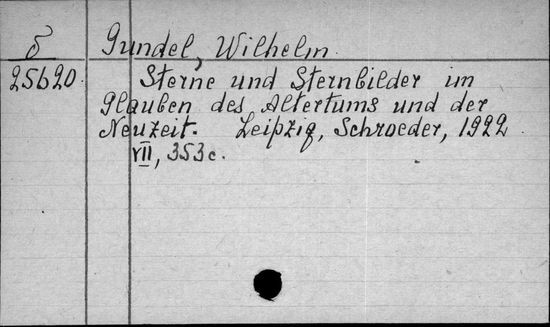 δ Gundel, Wilhelm.
25620. Sterne und Sternbilder im
Glauben des Altertums und der
Neuzeit. Leipzig, Schroeder, 1922
VII, 353c.